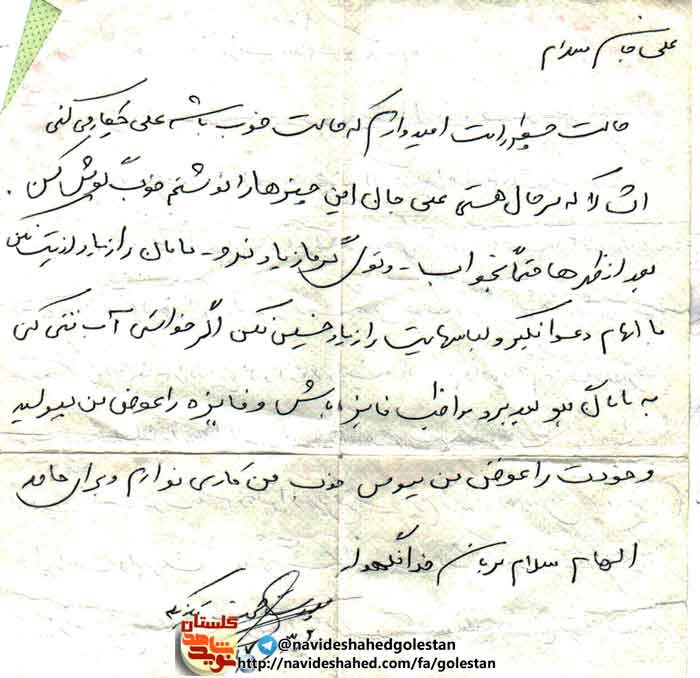 علی جان سلام
حالت چطور است امیدوارم که حالت خوب باشه علی چکار می کنی
انشاالله که سرحال هستی علی جان این چیزها را نوشتم خوب گوش کن .
بعد از ظهرها حتماً بخواب - و توی گرما زیاد نرو - مامان را زیاد اذیت نکن
با الهام دعوا نگیر و لباسهایت را زیاد خیس نکن اگر خواستی آب تنی کنی
به مامان بگو بعد برو مواظب فائزه باش و فائزه را عوض من ببوسید
و خودت را عوض من ببوس خوب من کاری ندارم و برای
الهام سلام برسان خدانگهدار
گلستان
نوید شاهد
@navideshahedgolestan
http://navideshahed.com/fa/golestan